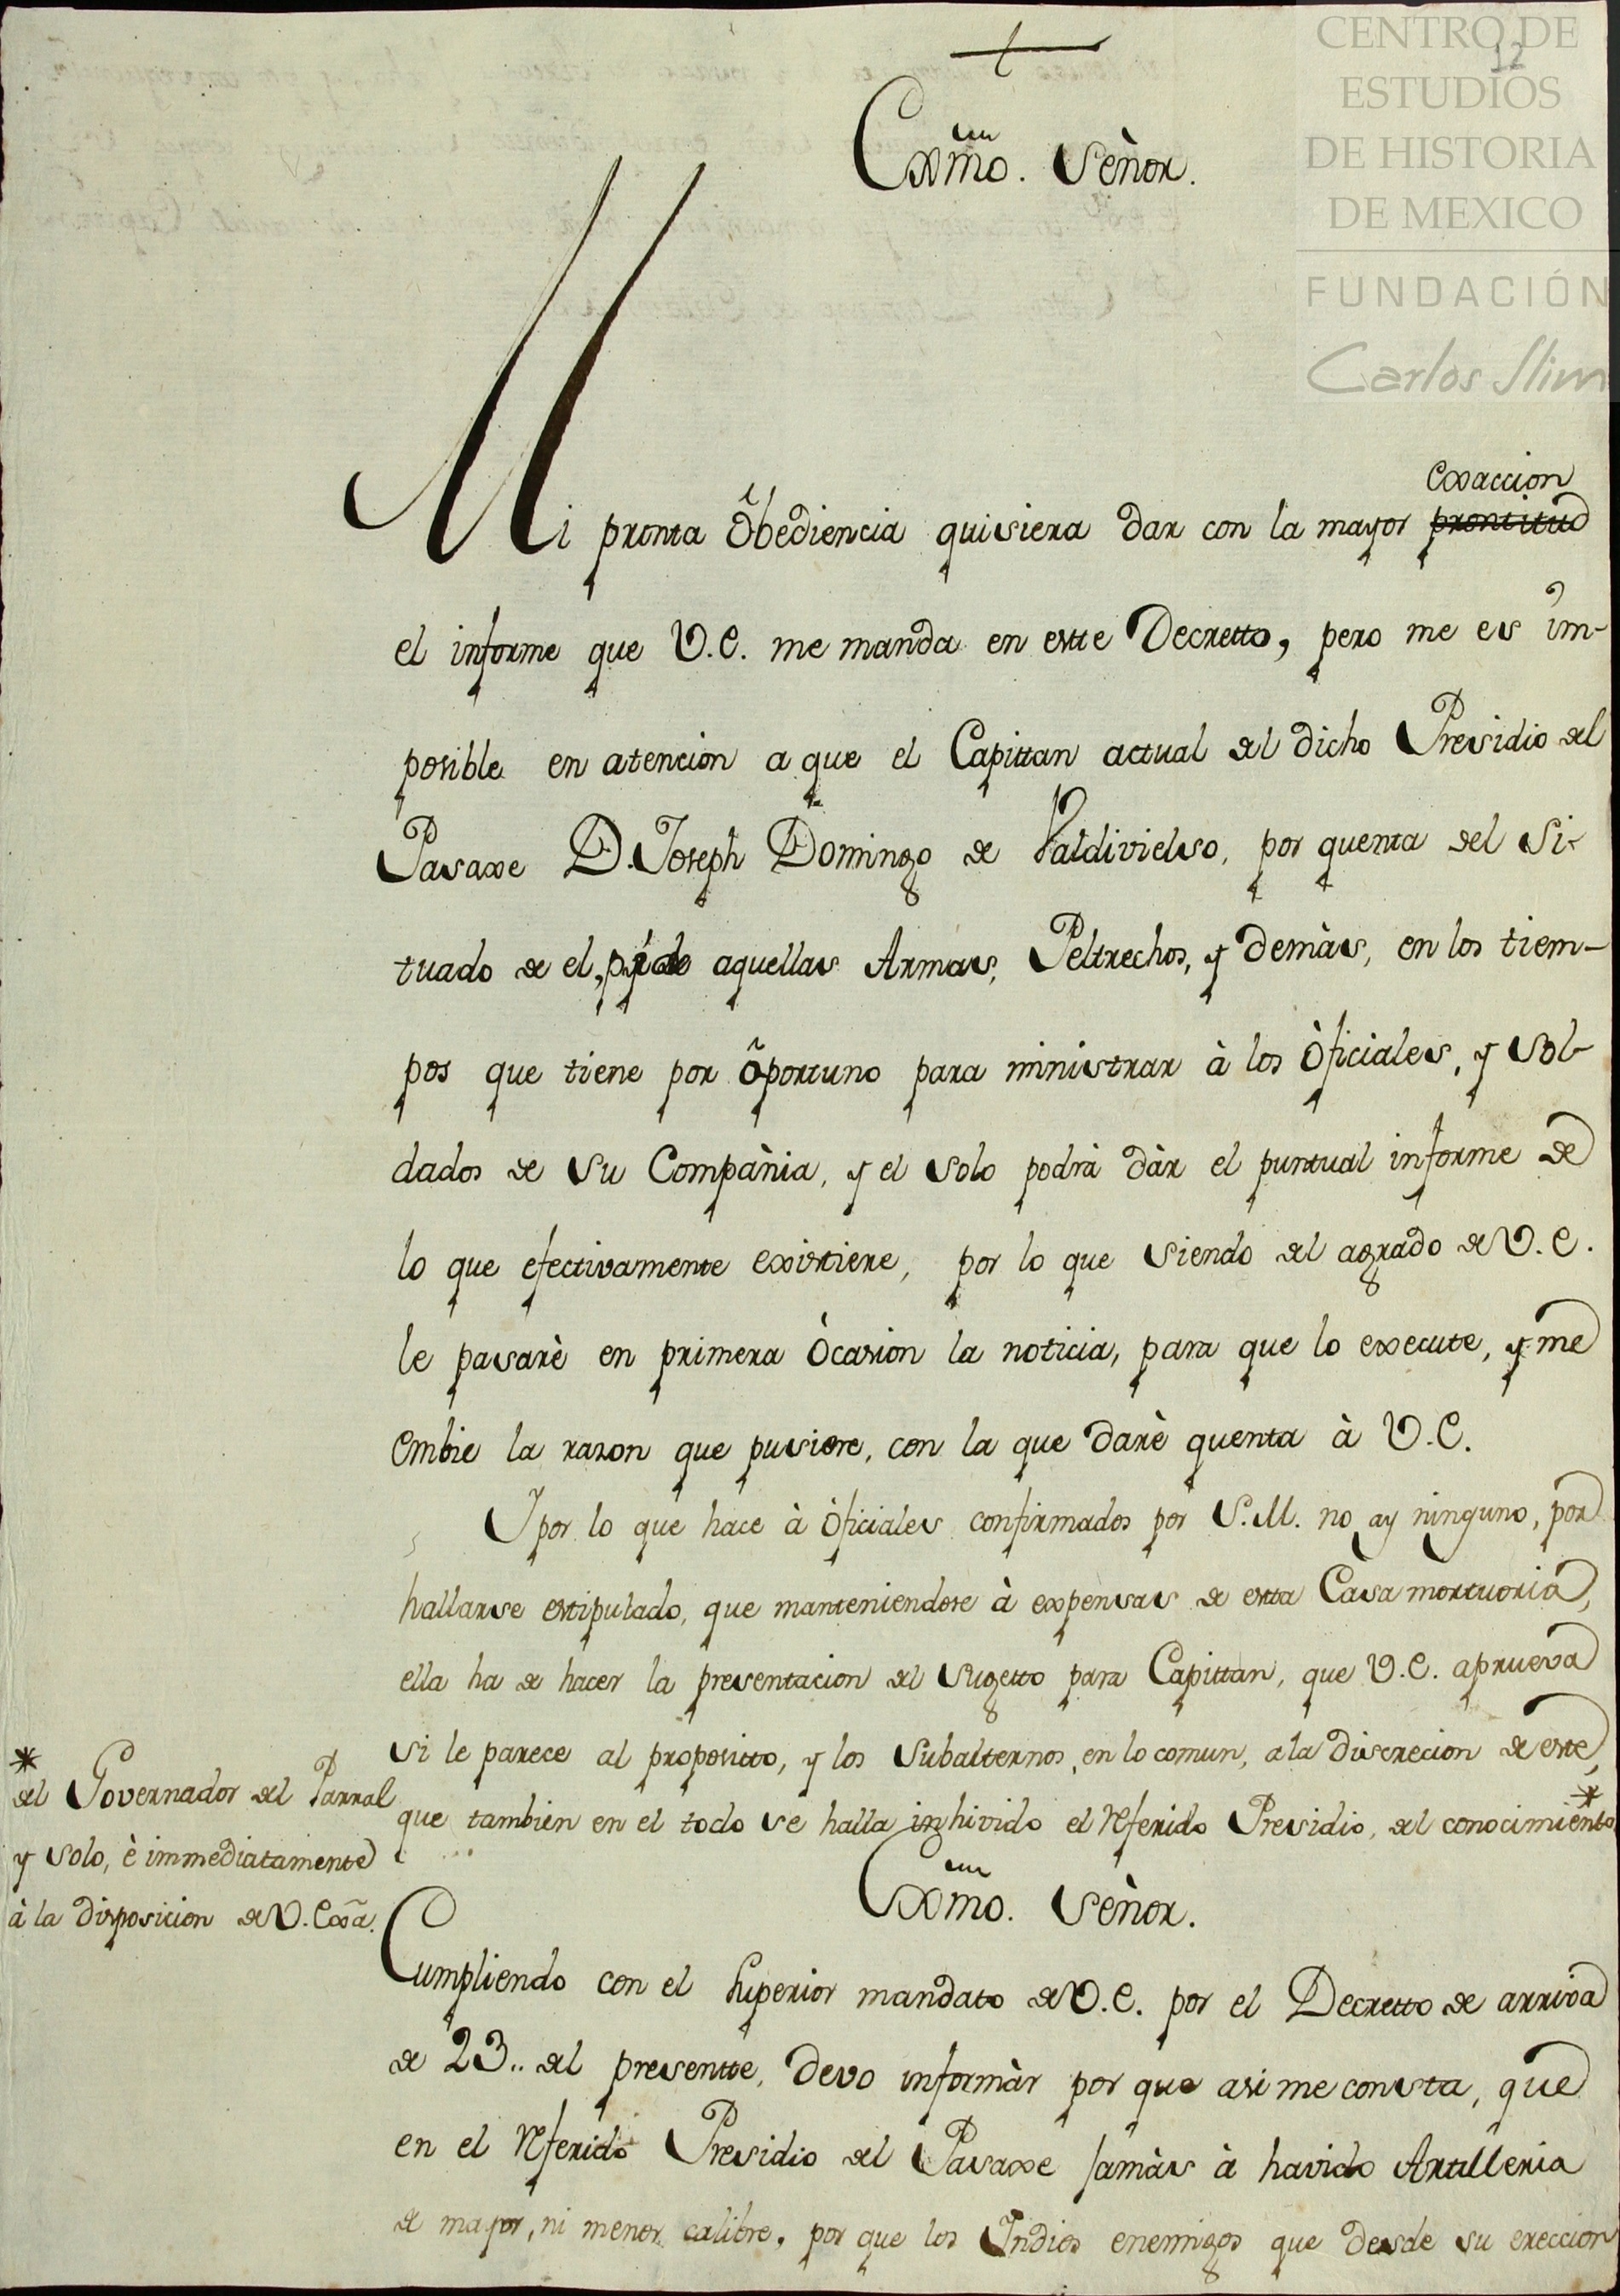 CENTRO DE
ESTUDIOS
DE HISTORIA
DE MEXICO
FUNDACIÓN
Carlos Slim
12
Exm̃o. Señor.
exaccion
Mi pronta õbediencia quisiera dar con la mayor prontitud
el informe que V.E. me manda en estte Decretto, pero me es im-
posible en atencion a que el Capittan actual del dicho Presidio del
Pasaxe D. Joseph Domingo de Valdivielso, por quenta del si-
tuado de el, pide aquellas Armas, Peltrechos, y demàs, en los tiem-
pos que tiene por õportuno para ministrar à los òficiales, y sol-
dados de su Compàñia, y el solo podrà dàr el puntual informe de
lo que efectivamente existiere, por lo que siendo del agrado de V.E.
le pasarè en primera òcasion la noticia, para que lo execute, y me
embie la razon que pusiere, con la que darè quenta à V.E.
Y por lo que hace à òficiales confirmados por S.M. no ay ninguno, por
hallarse estipulado, que manteniendose à expensas de estta Casa mortuoria,
ella ha de hacer la presentacion del sugetto para Capittan, que V.E. aprueva
si le parece al propositto, y los subalternos, en lo comun, a la discrecion de este,
que tambien en el todo se halla inhivido el referido Presidio, del conocimiento *
* del Governador del Parral
y solo, è immediatamente
à la disposicion de V. Exã.
Exm̃o. Señor.
Cumpliendo con el superior mandato de V.E. por el Decretto de arriva
de 23.. del presentte, devo informàr por que asi me consta, que
en el referido Presidio del Pasaxe jamàs à havido Artilleria
de mayor, ni menor calibre, por que los Yndios enemigos que desde su ereccion